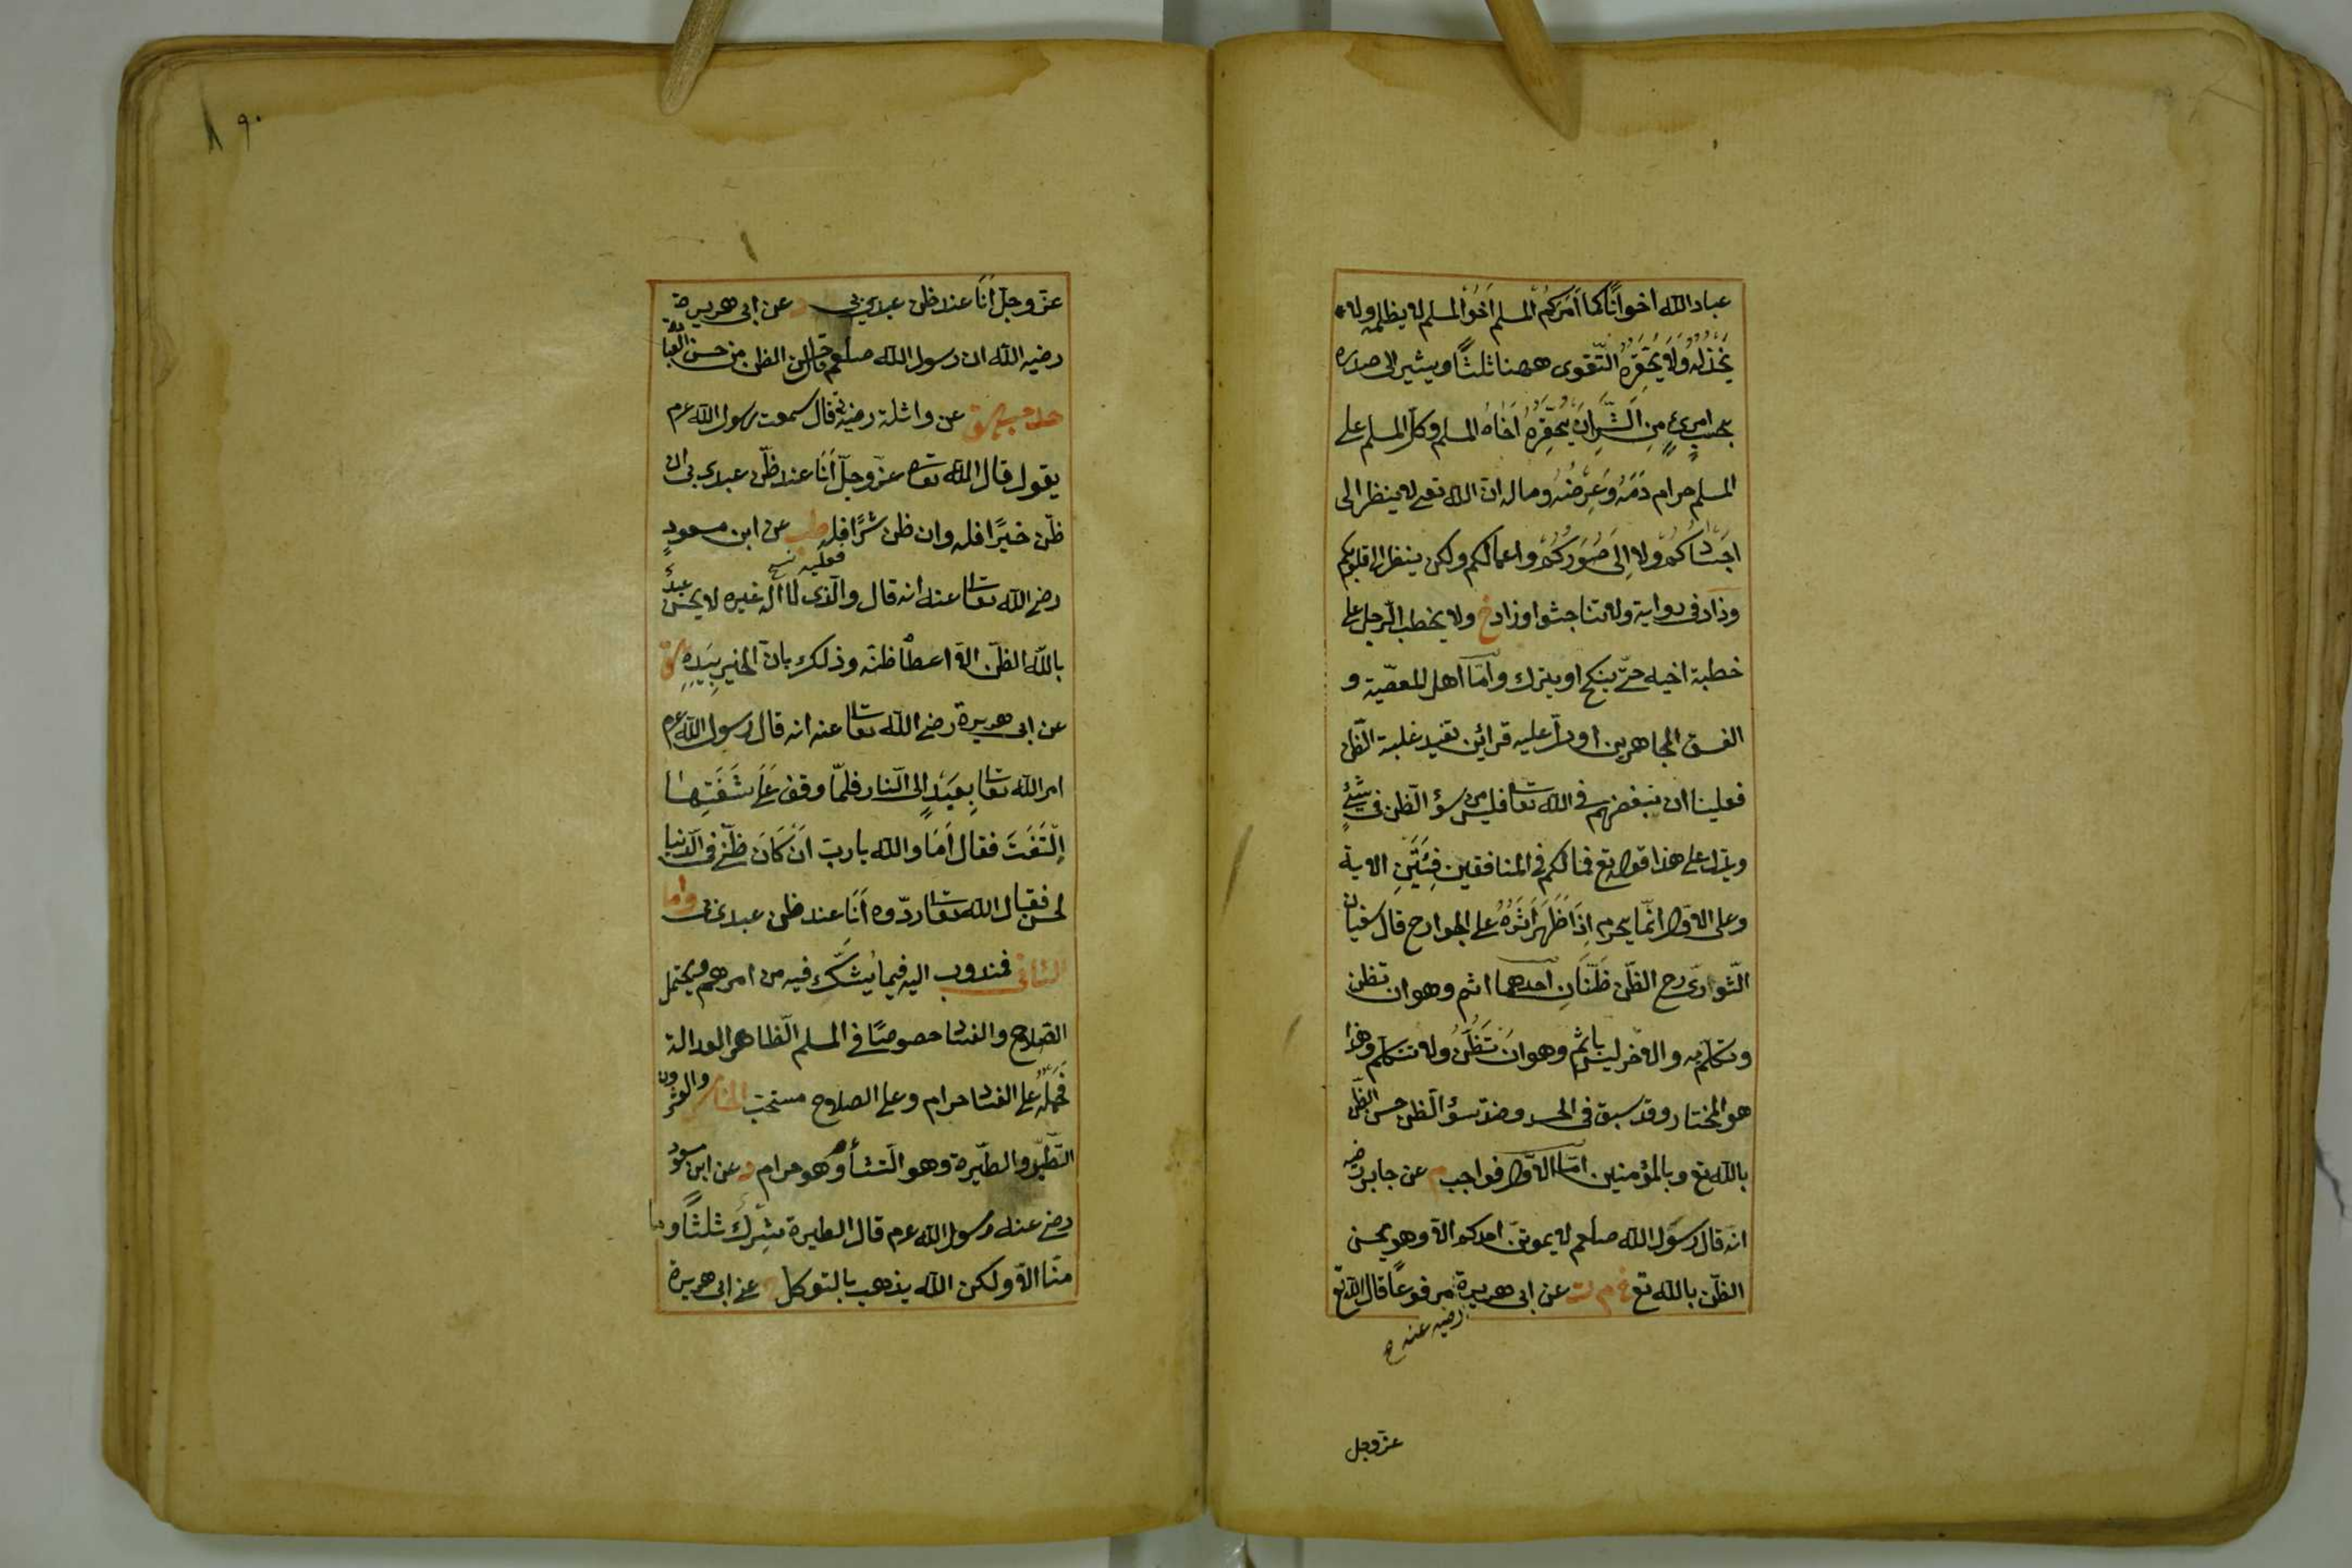 عباد الله اخوانًا كما اَمَرَكُمْ المسلم اَخُوْ المسلم لا يظلمه ولا
يَخْذُلُهُ وَلَا يُحَقِّرُهُ التّقوى ههنا ثلثًا ويشير الى صدره
بحسبِ امرئٍ مِنِ الشَّرِّ اَنْ يُحَقِّرَهُ اَخَاهُ المسلم وكلّ المسلم على
المسلم حرام دَمُهُ وَعِرْضُهُ وماله انّ الله تعے لا ينظر الى
اجسَادِكُمْ ولا اِلَى صُوَرِكُمْ واعمالكم ولكن ينظر الى قلوبكم
وزاد فى رواية ولا تناجشوا وزاد خ ولا يخطب الرّجل على
خطبة اخيه حتّے ينكح او يترك وامّا اهل المعصية و
الفسق المجاهرين او دلّ عليه قرائن تفيد غلبة الظّن
فعلينا ان نبغضهم فى الله تعا فليس من سؤ الظّن فى شئٍ
ويدل على هذا قوله تع فما لكم فى المنافقين فِئَتَيْنِ الاية
وعلى الاوّل انّما يحرم اِذَا ظَهَرَ اَثَرُهُ على الجوارح قال سفيان
الثّوارىّ رح الظّن ظَنَّانِ احدهما اثم وهو ان تظن
وتتكلّم به والاخر ليس باثم وهو ان تَظُنُّ ولا تتكلّم وهذا
هو المختار وقد سبق فى الحسد وضدّ سؤ الظّن حسن الظّن
بالله تع وبالمؤمنين امّا الاوّل فواجب م عن جابر رضيه
انّه قال رسول الله صلعم لا يموتنّ احدكم الا وهو يحسن
الظّن بالله تع خ م ت عن ابى هريرة مرفوعًا قال الله تع
رضيه عنه صح
عزّ وجل
٩٠
عزّ وجلّ اَنَا عند ظنّ عبدى بى د عن ابى هريرة
رضيه الله ان رسول الله صلعم قال حسن الظن من حسن العبادة
حد حب هق عن واثلة رضيه قال سمعت رسول الله عرم
يقول قال الله تعا عزّ وجلّ اَنَا عند ظنّ عبدى بى ان
ظنّ خيرًا فله وان ظن شرًا فله طب عن ابن مسعودٍ
فعليه نسخ
رضے الله تعا عنه انه قال والّذى لا اله غيره لا يحسن عبدٌ
بالله الظّن الا اعطاه ظنّه وذلك بانّ الخير بِيَدِهِ هق
عن ابى هريرة رضے الله تعا عنه انه قال رسول الله عرم
امر الله تعا بِعَبْدٍ الى النّار فلمّا وقف عَلَى شَفَتِهَا
اِلْتَفَتَ فقال اَمَا والله يا ربّ اِنْ كَانَ ظنّى فى الدّنيا
لحسن فقال الله تعا ردّوه اَنَا عند ظن عبدى بى واما
الثانى فمندوب اليه فيما يُشَكُّ فيه من امرهم ويحتمل
الصّلاح والفساد خصوصًا فى المسلم الظّاهر العدالة
فَحَمْلُهُ على الفساد حرام وعلى الصلاح مستحبّ الخامس والعشرون
التّطيّر والطّيرة وهو التّشأوم وهو حرام د عن ابن مسعود
رضے عنه رسول الله عرم قال الطيرة شِرْكٌ ثلثًا وما
منّا الا ولكن الله يذهب بالتوكل عن ابى هريرة